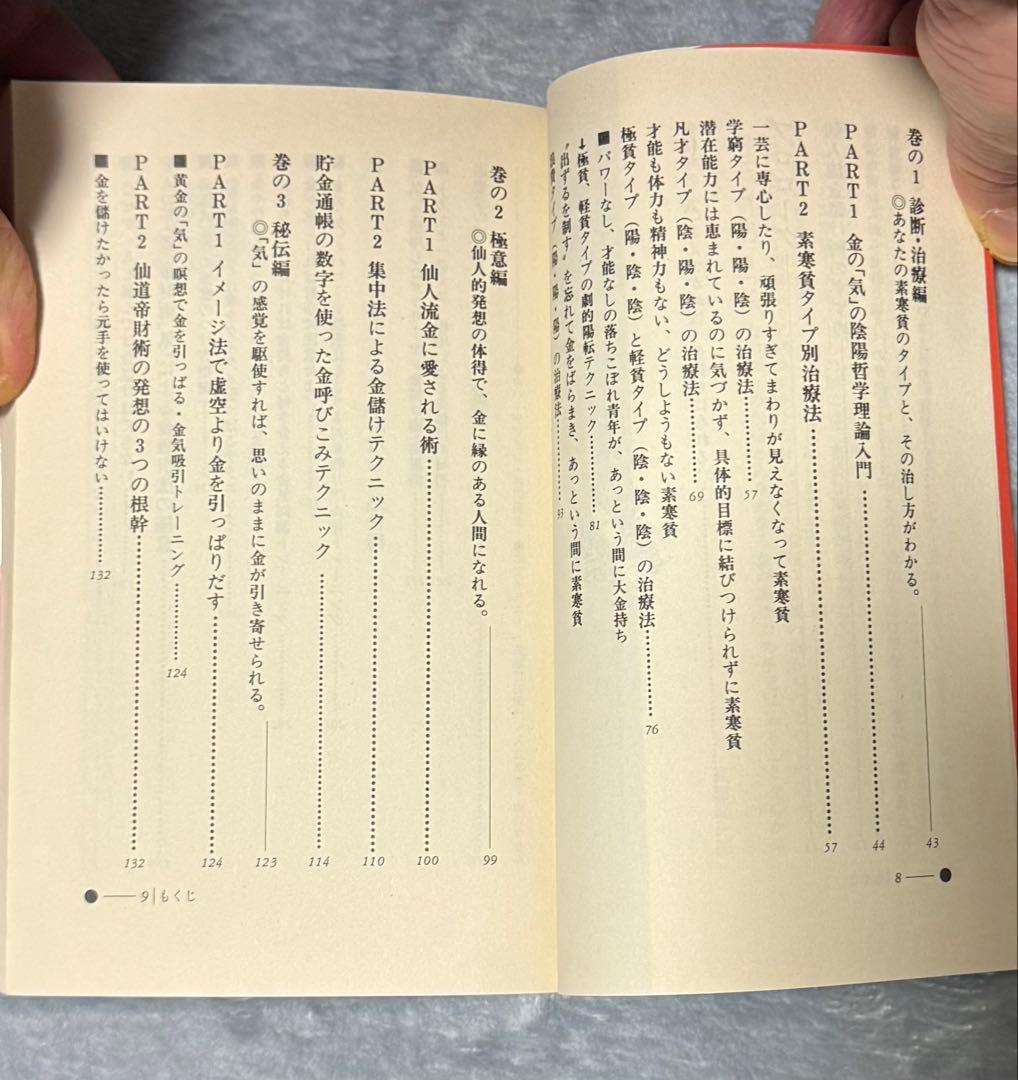 巻の1 診断・治療編
◎あなたの素寒貧のタイプと、その治し方がわかる。 43
PART1 金の「気」の陰陽哲学理論入門 44
PART2 素寒貧タイプ別治療法 57
一芸に専心したり、頑張りすぎてまわりが見えなくなって素寒貧
学窮タイプ（陽・陽・陰）の治療法 57
潜在能力には恵まれているのに気づかず、具体的目標に結びつけられずに素寒貧
凡才タイプ（陰・陽・陰）の治療法 69
才能も体力も精神力もない、どうしようもない素寒貧
極貧タイプ（陽・陰・陰）と軽貧タイプ（陰・陰・陰）の治療法 76
■パワーなし、才能なしの落ちこぼれ青年が、あっという間に大金持ち
↓極貧、軽貧タイプの劇的陽転テクニック 81
〝出ずるを制す〟を忘れて金をばらまき、あっという間に素寒貧
タイプ（陽・陽・陽）の治療法 93
8
巻の2 極意編
◎仙人的発想の体得で、金に縁のある人間になれる。 99
PART1 仙人流金に愛される術 100
PART2 集中法による金儲けテクニック 110
貯金通帳の数字を使った金呼びこみテクニック 114
巻の3 秘伝編
◎「気」の感覚を駆使すれば、思いのままに金が引き寄せられる。 123
PART1 イメージ法で虚空より金を引っぱりだす 124
■黄金の「気」の瞑想で金を引っぱる・金気吸引トレーニング 124
PART2 仙道帝財術の発想の3つの根幹 132
■金を儲けたかったら元手を使ってはいけない 132
9 もくじ